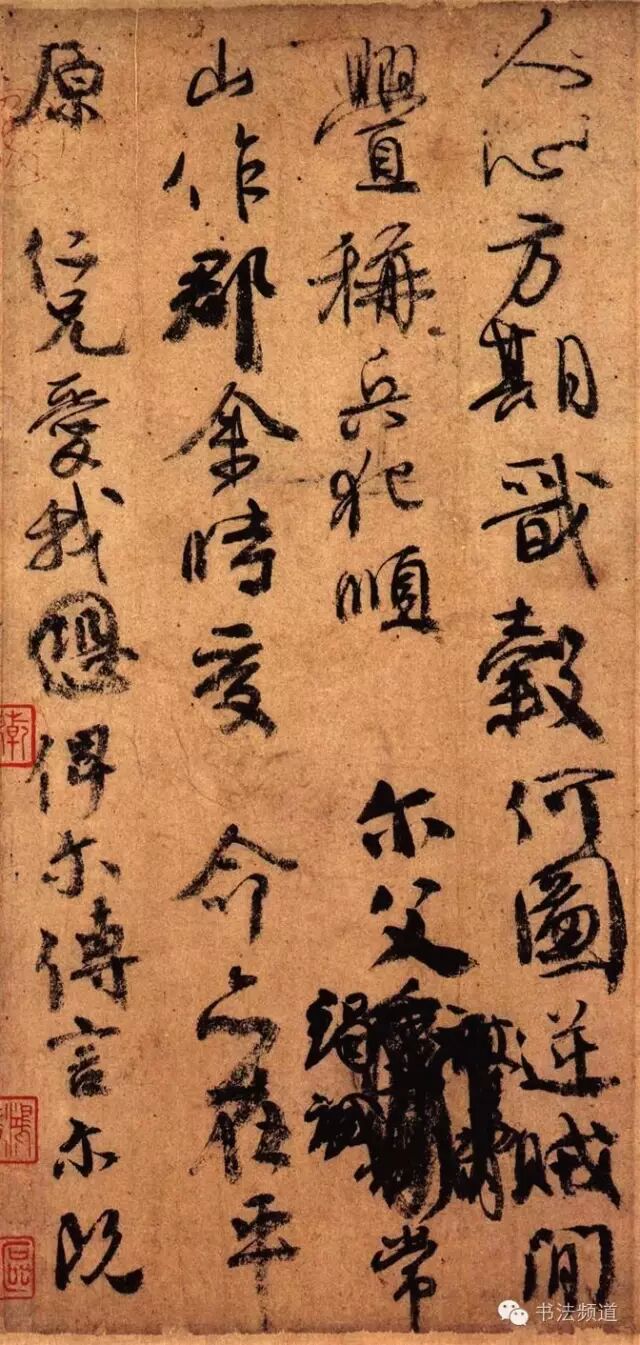 人心方期戩穀何圖逆賊間
釁稱兵犯順 尔父竭誠常
山作郡余時受 命亦在平
原 仁兄愛我俾尔傳言尔既
书法频道